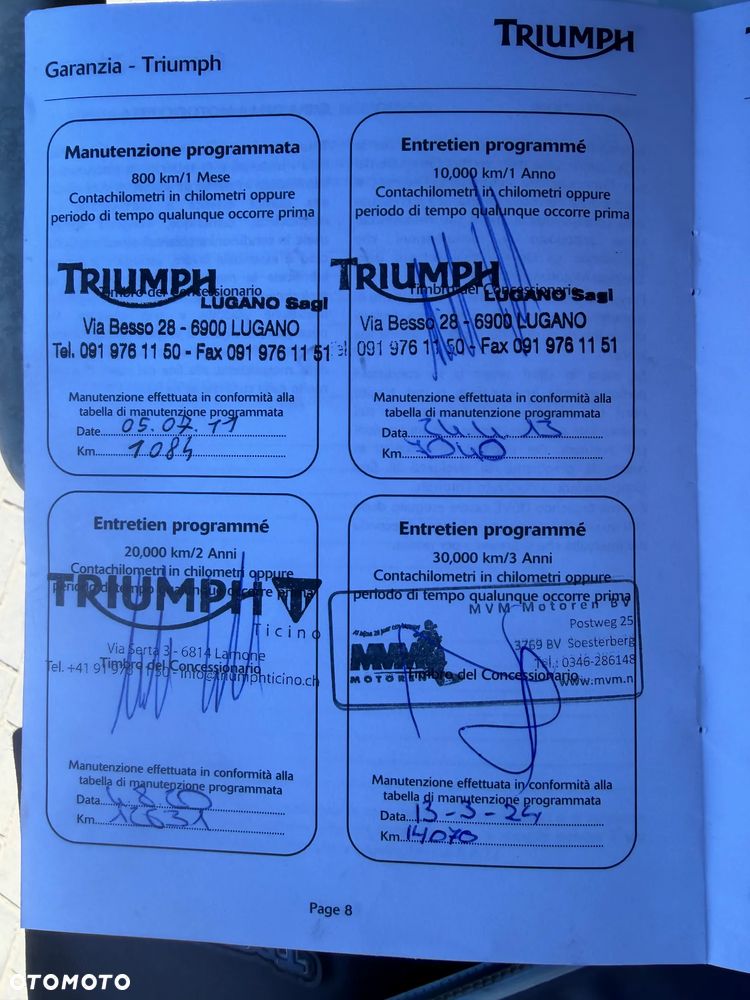 Garanzia - Triumph
TRIUMPH
Manutenzione programmata
800 km/1 Mese
Contachilometri in chilometri oppure
periodo di tempo qualunque occorre prima
Timbro del Concessionario
TRIUMPH
LUGANO Sagl
Via Besso 28 - 6900 LUGANO
Tel. 091 976 11 50 - Fax 091 976 11 51
Manutenzione effettuata in conformità alla
tabella di manutenzione programmata
Date 05.07.11
Km. 1084
Entretien programmé
10,000 km/1 Anno
Contachilometri in chilometri oppure
periodo di tempo qualunque occorre prima
Timbro del Concessionario
TRIUMPH
LUGANO Sagl
Via Besso 28 - 6900 LUGANO
091 976 11 50 - Fax 091 976 11 51
Manutenzione effettuata in conformità alla
tabella di manutenzione programmata
Data
Km. 7040
Entretien programmé
20,000 km/2 Anni
Contachilometri in chilometri oppure
periodo di tempo qualunque occorre prima
TRIUMPH T
Ticino
Via Serta 3 - 6814 Lamone
Timbro del Concessionario
Tel. +41 91 976 11 50 - info@triumphticino.ch
Manutenzione effettuata in conformità alla
tabella di manutenzione programmata
Data
Km. 12631
Entretien programmé
30,000 km/3 Anni
Contachilometri in chilometri oppure
periodo di tempo qualunque occorre prima
MVM Motoren BV
Postweg 25
3769 BV Soesterberg
Tel.: 0346-286148
www.mvm.n
MVM
MOTOREN
Timbro del Concessionario
Manutenzione effettuata in conformità alla
tabella di manutenzione programmata
Data 13-3-24
Km. 14070
Page 8
OTOMOTO